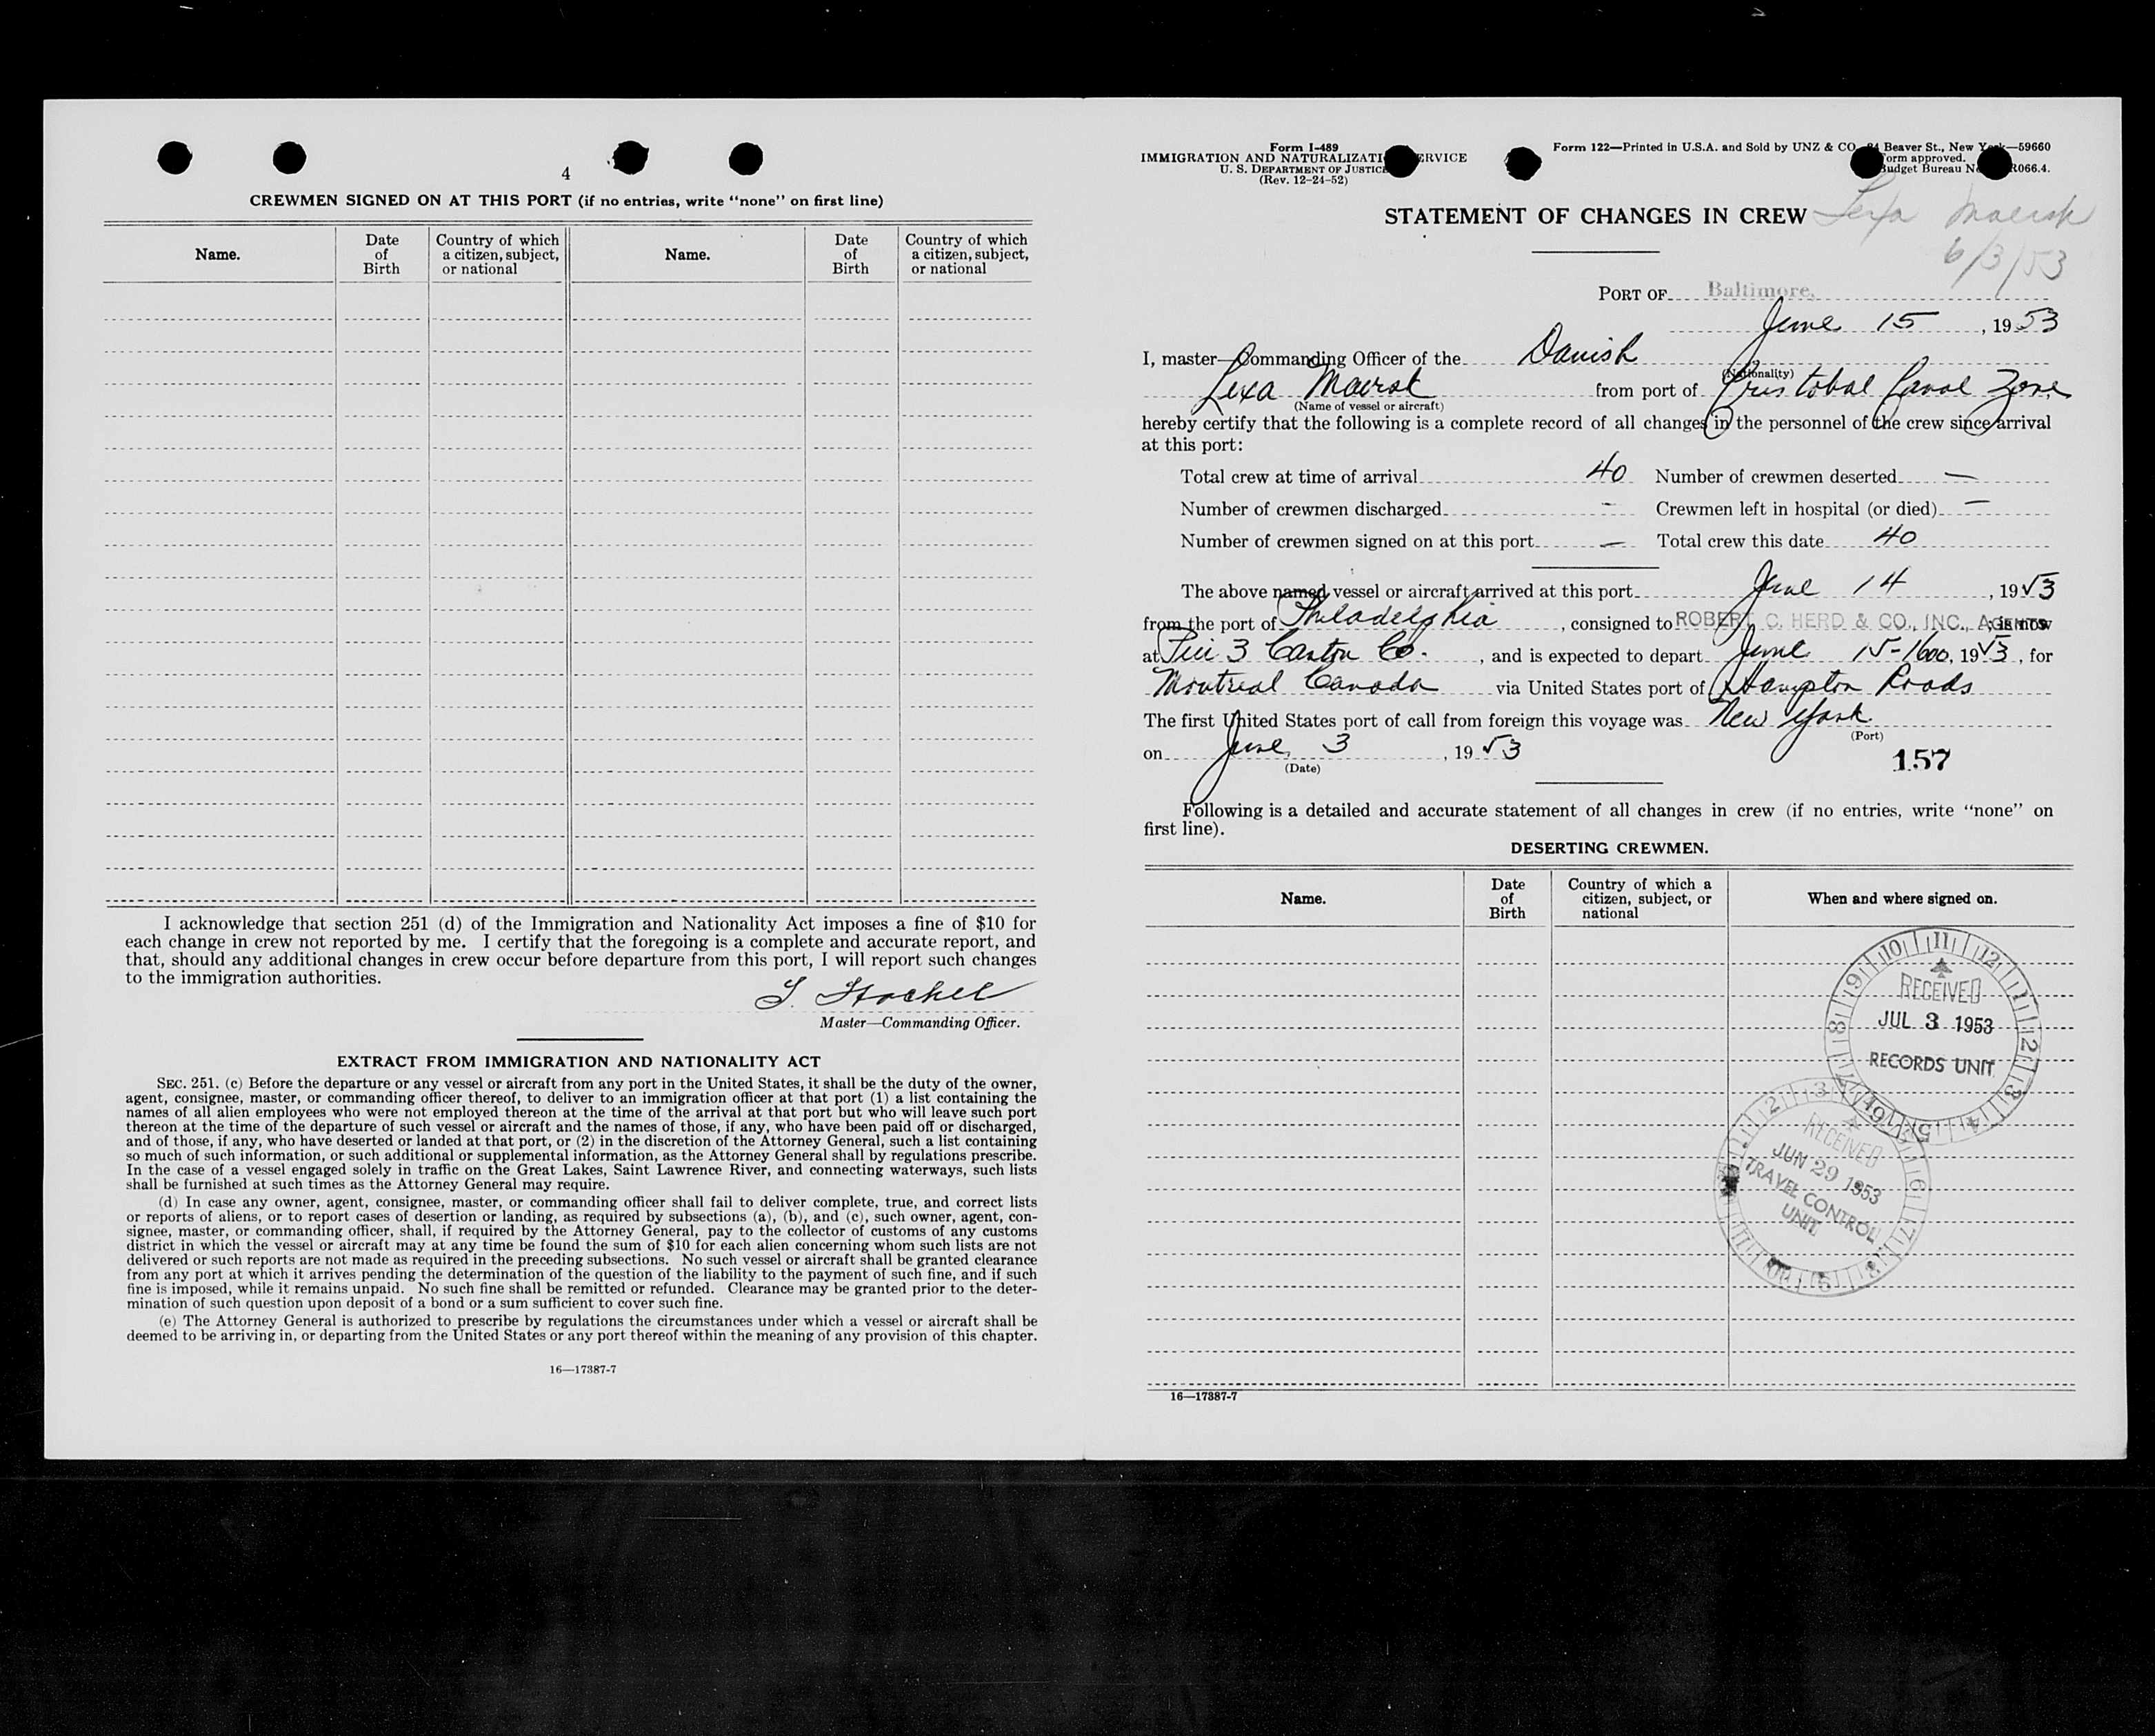 4
CREWMEN SIGNED ON AT THIS PORT (if no entries, write “none” on first line)
Name. Date of Birth Country of which a citizen, subject, or national Name. Date of Birth Country of which a citizen, subject, or national
I acknowledge that section 251 (d) of the Immigration and Nationality Act imposes a fine of $10 for
each change in crew not reported by me. I certify that the foregoing is a complete and accurate report, and
that, should any additional changes in crew occur before departure from this port, I will report such changes
to the immigration authorities.
Master—Commanding Officer.
EXTRACT FROM IMMIGRATION AND NATIONALITY ACT
SEC. 251. (c) Before the departure or any vessel or aircraft from any port in the United States, it shall be the duty of the owner,
agent, consignee, master, or commanding officer thereof, to deliver to an immigration officer at that port (1) a list containing the
names of all alien employees who were not employed thereon at the time of the arrival at that port but who will leave such port
thereon at the time of the departure of such vessel or aircraft and the names of those, if any, who have been paid off or discharged,
and of those, if any, who have deserted or landed at that port, or (2) in the discretion of the Attorney General, such a list containing
so much of such information, or such additional or supplemental information, as the Attorney General shall by regulations prescribe.
In the case of a vessel engaged solely in traffic on the Great Lakes, Saint Lawrence River, and connecting waterways, such lists
shall be furnished at such times as the Attorney General may require.
(d) In case any owner, agent, consignee, master, or commanding officer shall fail to deliver complete, true, and correct lists
or reports of aliens, or to report cases of desertion or landing, as required by subsections (a), (b), and (c), such owner, agent, con-
signee, master, or commanding officer, shall, if required by the Attorney General, pay to the collector of customs of any customs
district in which the vessel or aircraft may at any time be found the sum of $10 for each alien concerning whom such lists are not
delivered or such reports are not made as required in the preceding subsections. No such vessel or aircraft shall be granted clearance
from any port at which it arrives pending the determination of the question of the liability to the payment of such fine, and if such
fine is imposed, while it remains unpaid. No such fine shall be remitted or refunded. Clearance may be granted prior to the deter-
mination of such question upon deposit of a bond or a sum sufficient to cover such fine.
(e) The Attorney General is authorized to prescribe by regulations the circumstances under which a vessel or aircraft shall be
deemed to be arriving in, or departing from the United States or any port thereof within the meaning of any provision of this chapter.
16—17387-7
Form I-489
IMMIGRATION AND NATURALIZATI ERVICE
U. S. DEPARTMENT OF JUSTICE
(Rev. 12-24-52)
Form 122—Printed in U.S.A. and Sold by UNZ & CO Beaver St., New York—59660
orm approved.
Budget Bureau N R066.4.
STATEMENT OF CHANGES IN CREW Lexa Maersk
6/3/53
PORT OF Baltimore,
June 15, 1953
I, master—Commanding Officer of the Danish
(Nationality)
Lexa Maersk from port of Cristobal Canal Zone
(Name of vessel or aircraft)
hereby certify that the following is a complete record of all changes in the personnel of the crew since arrival
at this port:
Total crew at time of arrival 40 Number of crewmen deserted —
Number of crewmen discharged - Crewmen left in hospital (or died) —
Number of crewmen signed on at this port — Total crew this date 40
The above named vessel or aircraft arrived at this port June 14, 1953
from the port of Philadelphia, consigned to ROBERT C. HERD & CO., INC., AGENTS; is now
at Pier 3 Canton Co., and is expected to depart June 15-1600, 1953, for
Montreal Canada via United States port of Hampton Roads
The first United States port of call from foreign this voyage was New York
(Port)
on June 3, 1953
(Date)
157
Following is a detailed and accurate statement of all changes in crew (if no entries, write “none” on
first line).
DESERTING CREWMEN.
Name. Date of Birth Country of which a citizen, subject, or national When and where signed on.
RECEIVED
JUL 3 1953
RECORDS UNIT
RECEIVED
JUN 29 1953
TRAVEL CONTROL
UNIT
16—17387-7